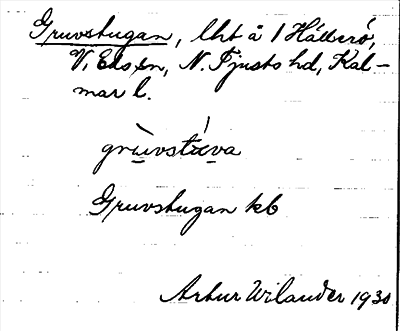 Gruvstugan, lht å 1 Hällerö,
V. Eds sn, N. Tjusts hd, Kal-
mar l.
Gruvstugan kb
Artur Wilander 1930